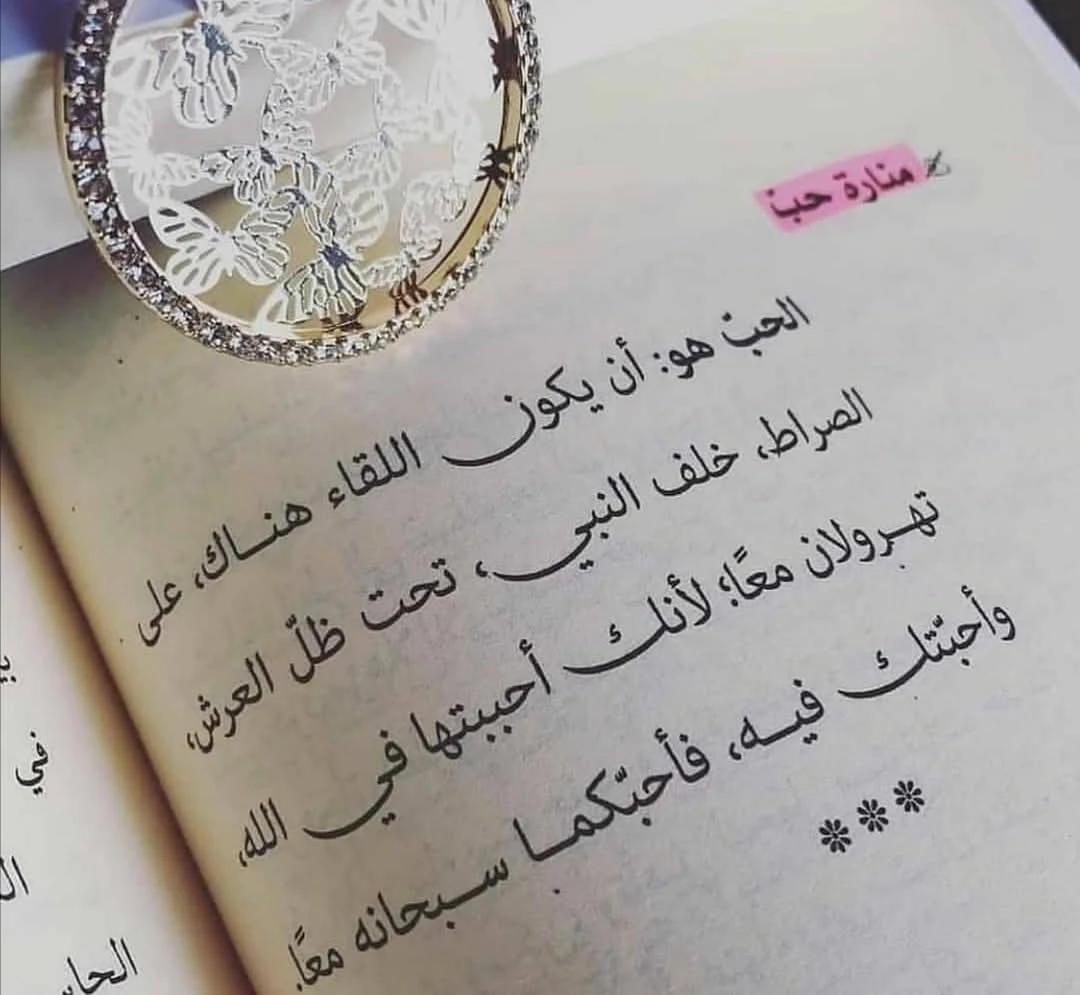 منارة حبّ
الحبّ هو: أن يكون اللقاء هناك، على
الصراط، خلف النبي، تحت ظلّ العرش،
تهرولان معًا؛ لأنك أحببتها في الله،
وأحبّتك فيه، فأحبّكما سبحانه معًا.
***
في